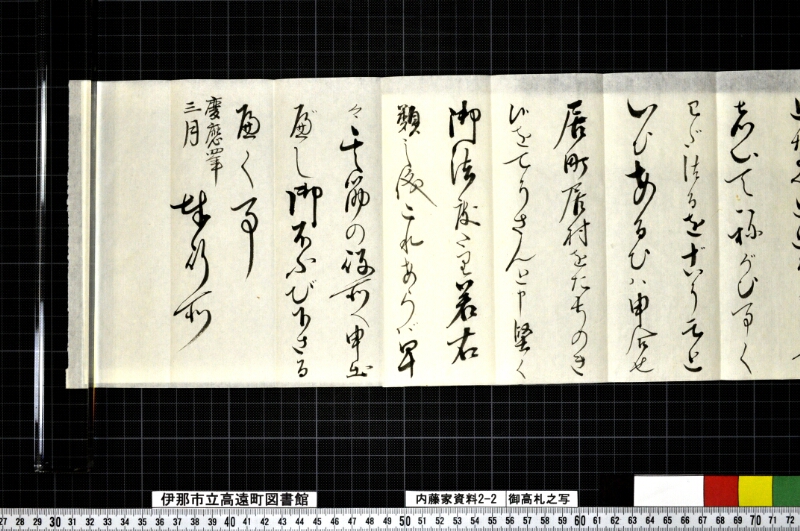 志ひて祢がひ事く
わだつるをごうそと
いひあるひハ申合せ
居町居村をたちのき
候をてうさんと申堅く
御法度たり若右
類之儀これあらバ早
々其筋の役所へ申出
べし御ほうび下さる
べく事
慶應四年
三月
奉行所
伊那市立高遠町図書館
内藤家資料2-2 御高札之写
27 28 29 30 31 32 33 34 35 36 37 38 39 40 41 42 43 44 45 46 47 48 49 50 51 52 53 54 55 56 57 58 59 60 61 62 63 64 65 66 67 68 69 70 71 72